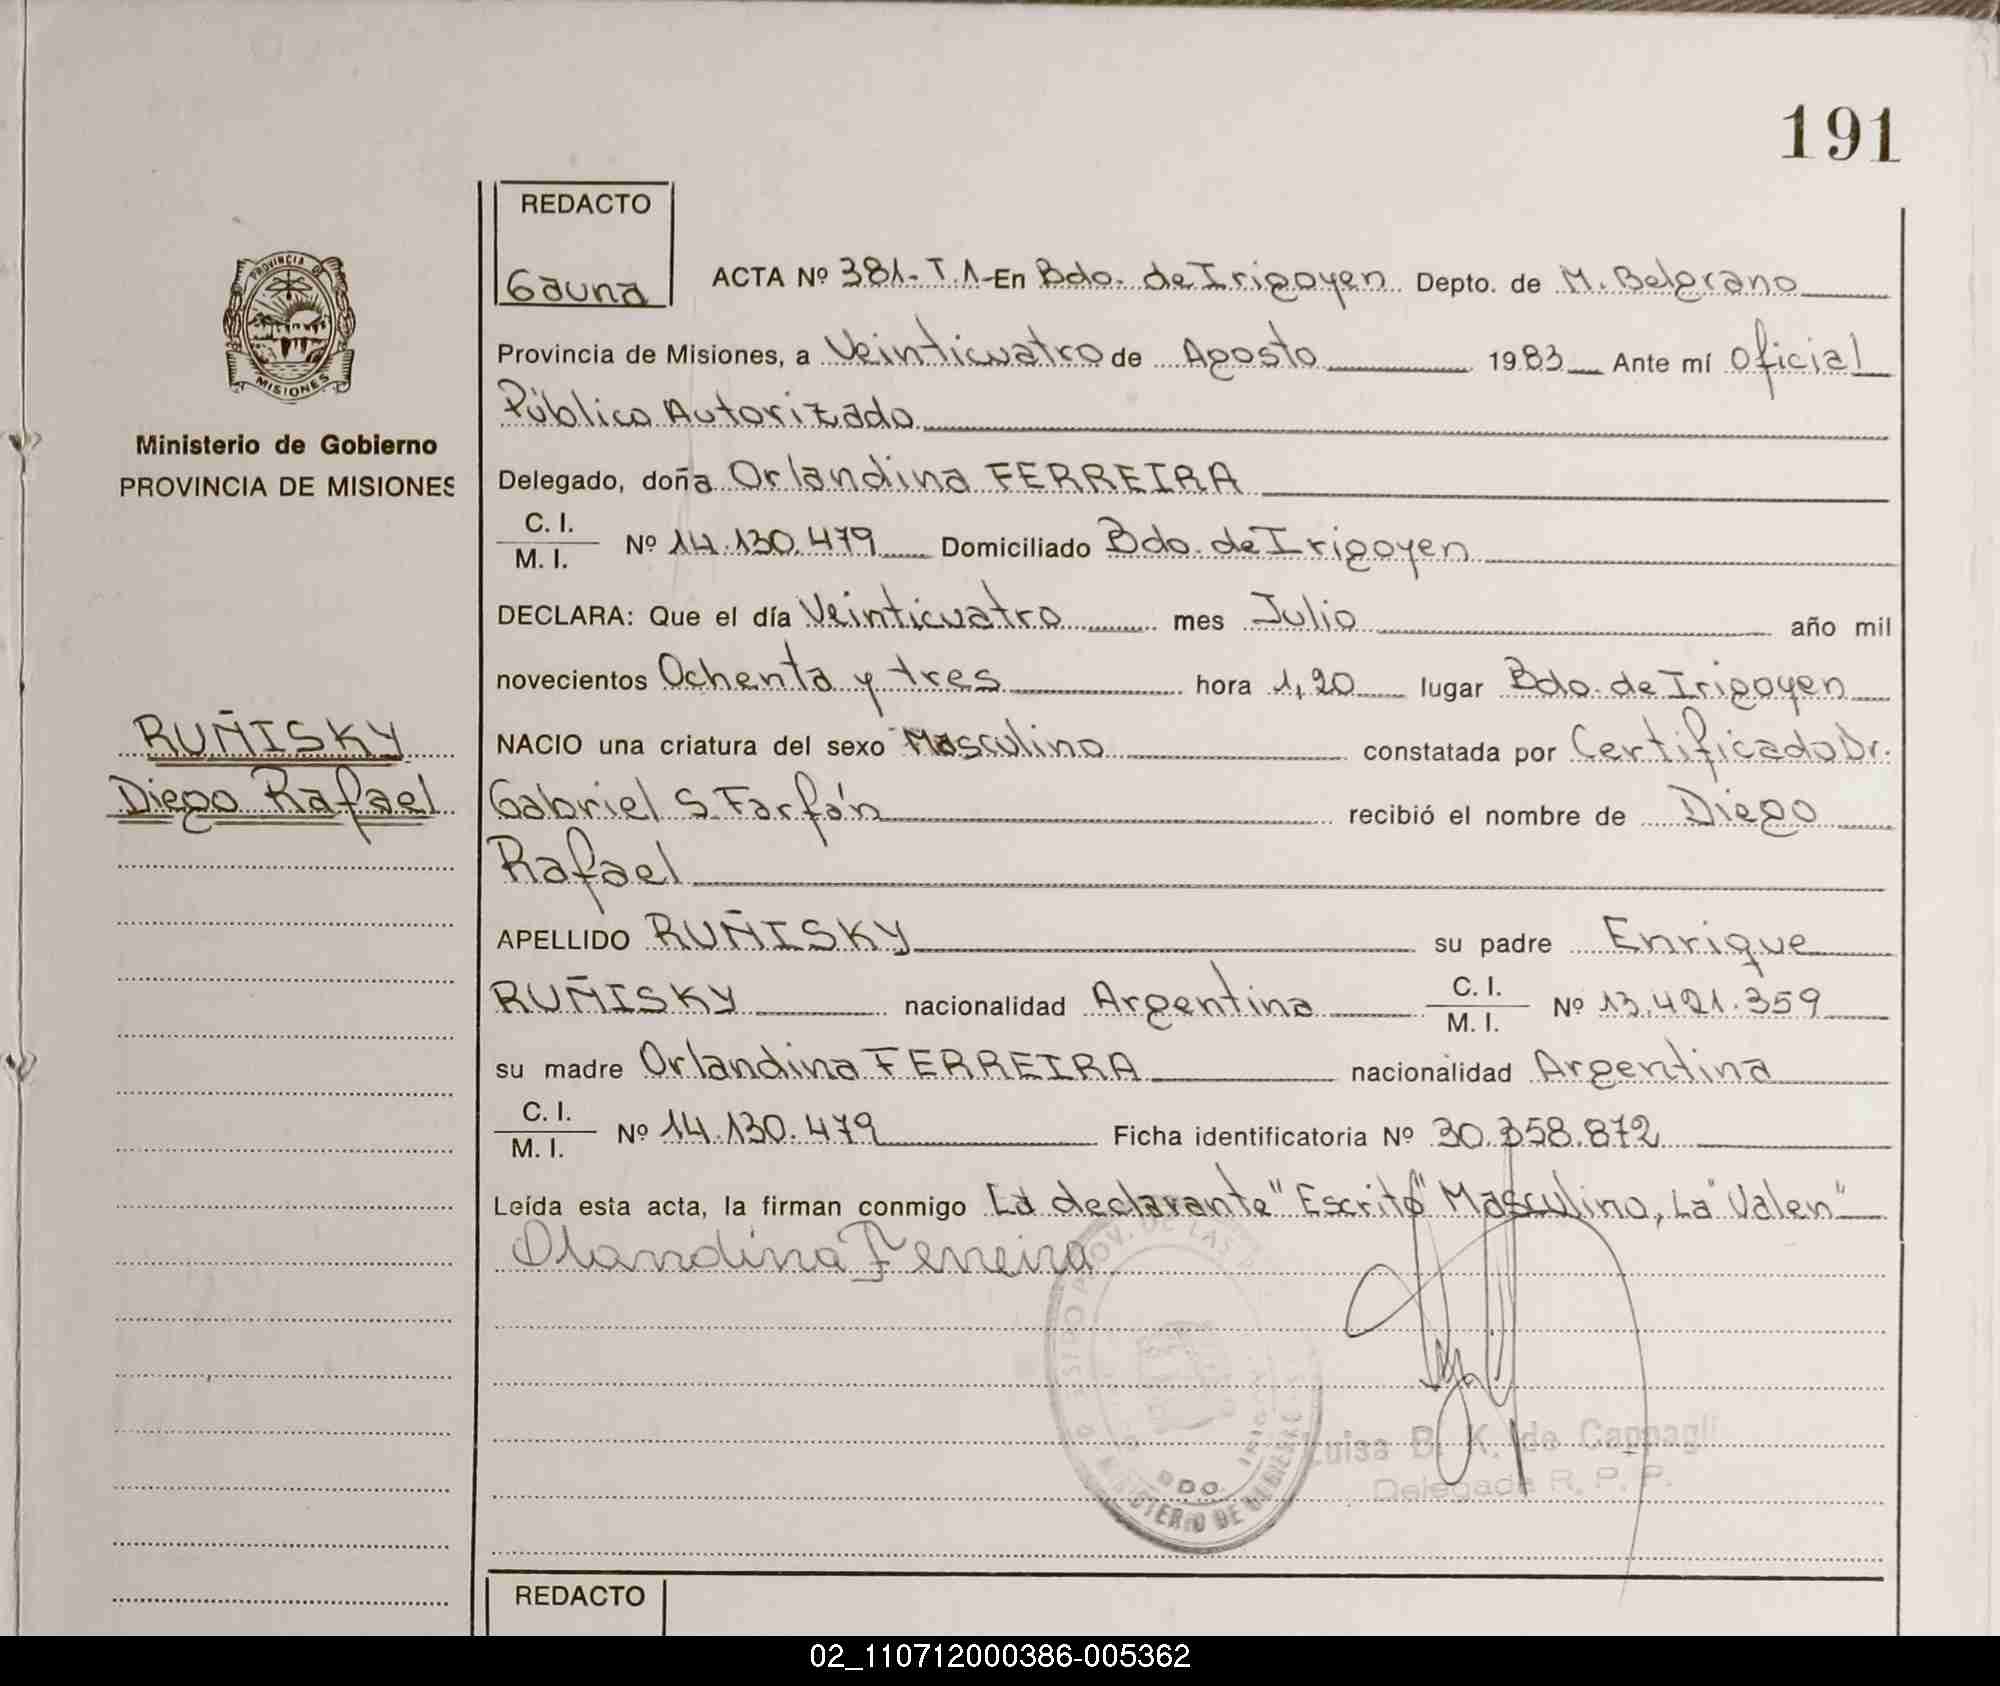 191
REDACTO
Gauna
ACTA Nº 381-T.1-En Bdo. de Irigoyen Depto. de M. Belgrano
PROVINCIA DE
MISIONES
Provincia de Misiones, a Veinticuatro de Agosto 1983 Ante mí Oficial
Público Autorizado
Ministerio de Gobierno
PROVINCIA DE MISIONES
Delegado, doña Orlandina FERREIRA
C. I.
M. I. Nº 14.130.479 Domiciliado Bdo. de Irigoyen
DECLARA: Que el día Veinticuatro mes Julio año mil
novecientos Ochenta y tres hora 1,20 lugar Bdo. de Irigoyen
RUÑISKY
Diego Rafael
NACIO una criatura del sexo Masculino constatada por Certificado Dr.
Gabriel S. Farfán recibió el nombre de Diego
Rafael
APELLIDO RUÑISKY su padre Enrique
RUÑISKY nacionalidad Argentina C. I. M. I. Nº 13.421.359
su madre Orlandina FERREIRA nacionalidad Argentina
C. I.
M. I. Nº 14.130.479 Ficha identificatoria Nº 30.358.872
Leída esta acta, la firman conmigo La declarante "Escrito" Masculino, La "Valen"
Olandina Ferreira
PROV. DE LAS
BDO. IRIGOYEN
MINISTERIO DE GOBIERNO
Luisa B. K. de Cappagli
Delegada R. P. P.
REDACTO
02_110712000386-005362